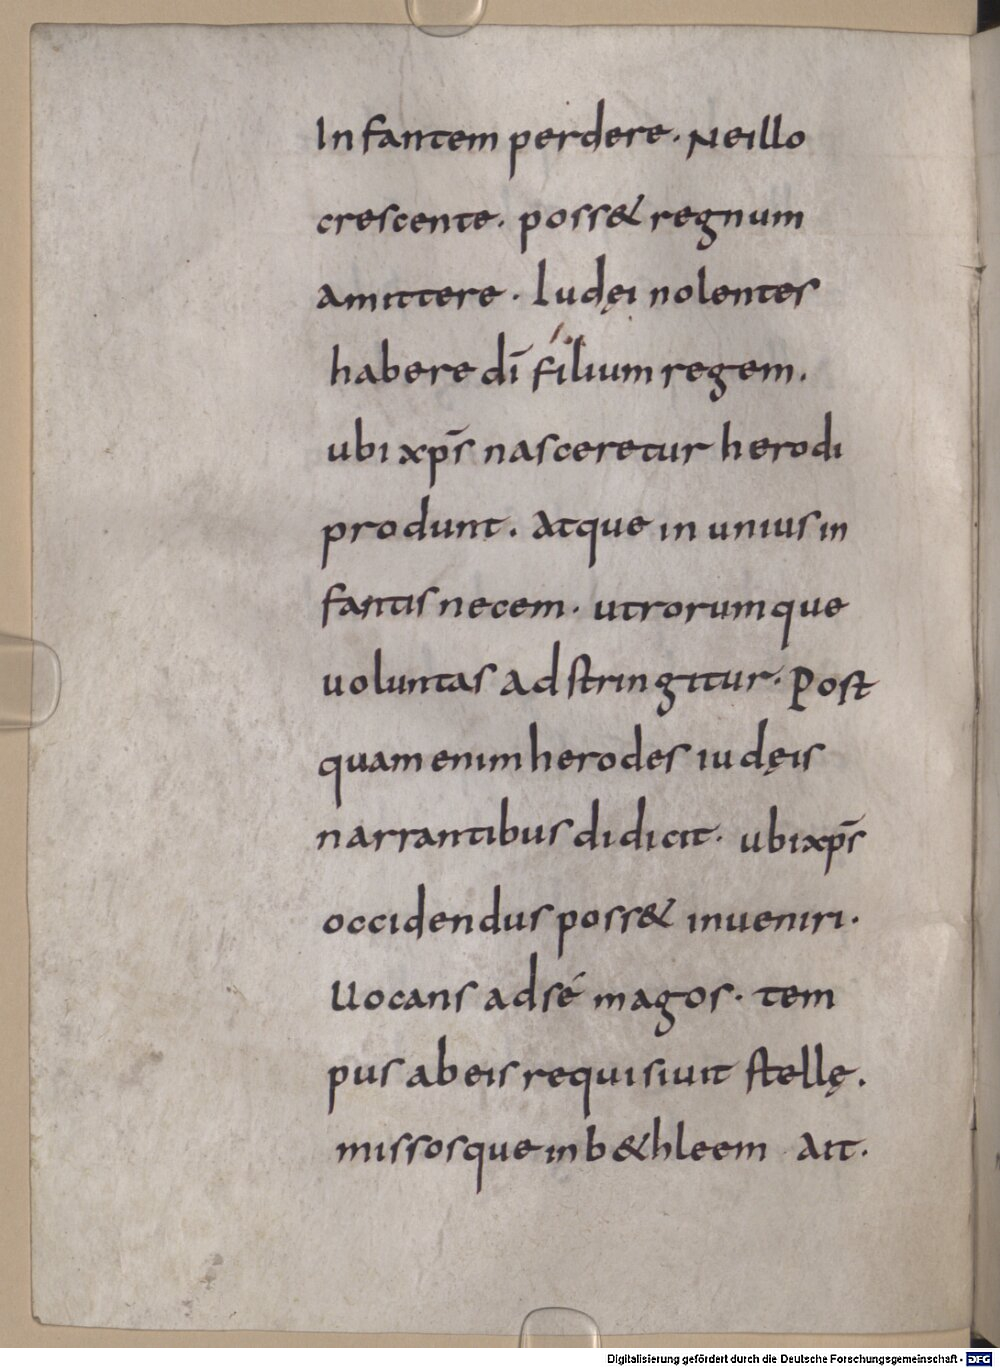 Infantem perdere· Ne illo
crescente· poss& regnum
amittere· Iudęi nolentes
habere dī filium regem.
ubi xp̄s nasceretur herodi
produnt. Atque in unius in
fantis necem· utrorumque
uoluntas adstringitur· Post
quam enim herodes iudęis
narrantibus didicit· ubi xp̄s
occidendus poss& inueniri·
Uocans ad sé magos· tem
pus ab eis requisiuit stellę.
missosque in b&hleem Ait·
Digitalisierung gefördert durch die Deutsche Forschungsgemeinschaft - DFG